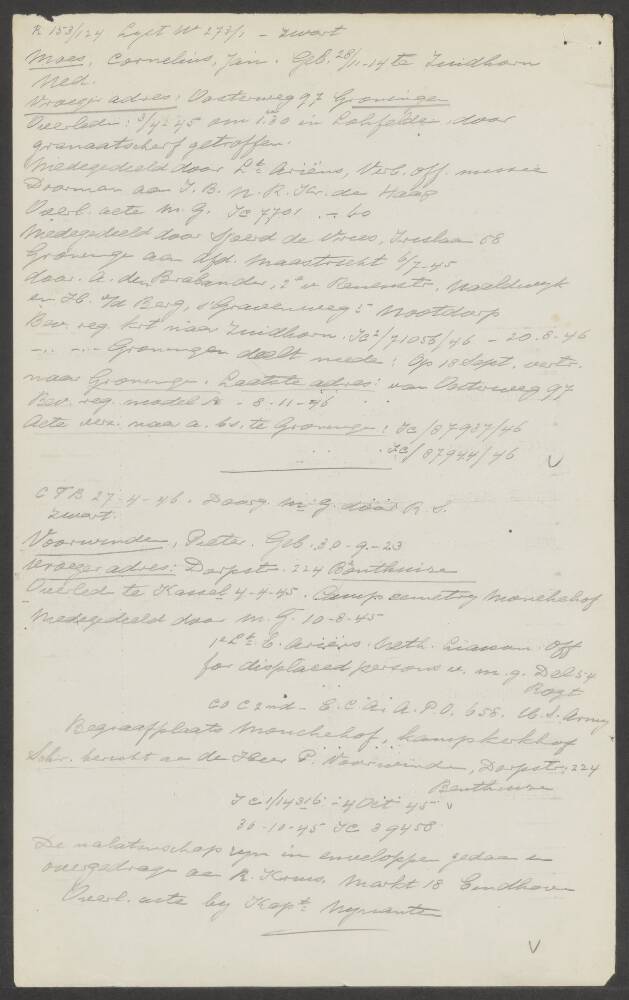 R 153/124 Lyst No 273/1 - Zwart
Moes, Cornelius, Jan. Geb. 28/11-14 te Zuidhorn
Ned.
Vroeger adres: Oosterweg 97 Groningen
Overleden: 3/4-45 om 1.30 in Lohfelden door
granaatscherf getroffen.
Medegedeeld door Lt. Ariëns, Verb. off. missie
Doorman aan I.B. N.R. Kr. den Haag
Overl. acte m.g. Jc 7701 - 60
Medegedeeld door Sjoerd de Vries, 58
Groningen aan Afd. Maastricht 6/7-45
door A. den Brabander, Naaldwyk
en H. v/d Berg, 's Gravenweg 5 Nootdorp
Bev. reg. krt naar Zuidhorn. Jc2/71056/46 - 20-8-46
-.. -.. Groningen deelt mede: Op 18 Sept. vertr.
naar Groningen. Laatste adres: van Oosterweg 97
Bev. reg. model - 8-11-46
Acte verz. naar a. b.s. te Groningen: Jc/87937/46
Jc/87944/46 V
CTB 27-4-46. Doorg. m.g. door R.S.
Zwart.
Voorwinden, Pieter. Geb. 30-9-23
Vroeger adres: Dorpstr. 224 Benthuizen
Overled. te Kassel 4-4-45. Camp cemetry Monchehof
Medegedeeld door m.g. 10-8-45
1e Lt. E. Ariëns. Neth. Liaison Off
for displaced persons u. m.g. Det 54
CO C 2nd - E.C.A. A.P.O. 658. U.S. Army
Begraafplaats Monchehof, kampkerkhof
Schr. bericht aan de Heer P. Voorwinden, Dorpstr. 224
Benthuizen
Jc 1/14316 - 4 Oct 45 V
30-10-45 Jc 39458
De nalatenschap zyn in enveloppen gedaan en
overgedragen aan R. Kruis, Markt 18 Eindhoven
Overl. acte by Kapt.
V